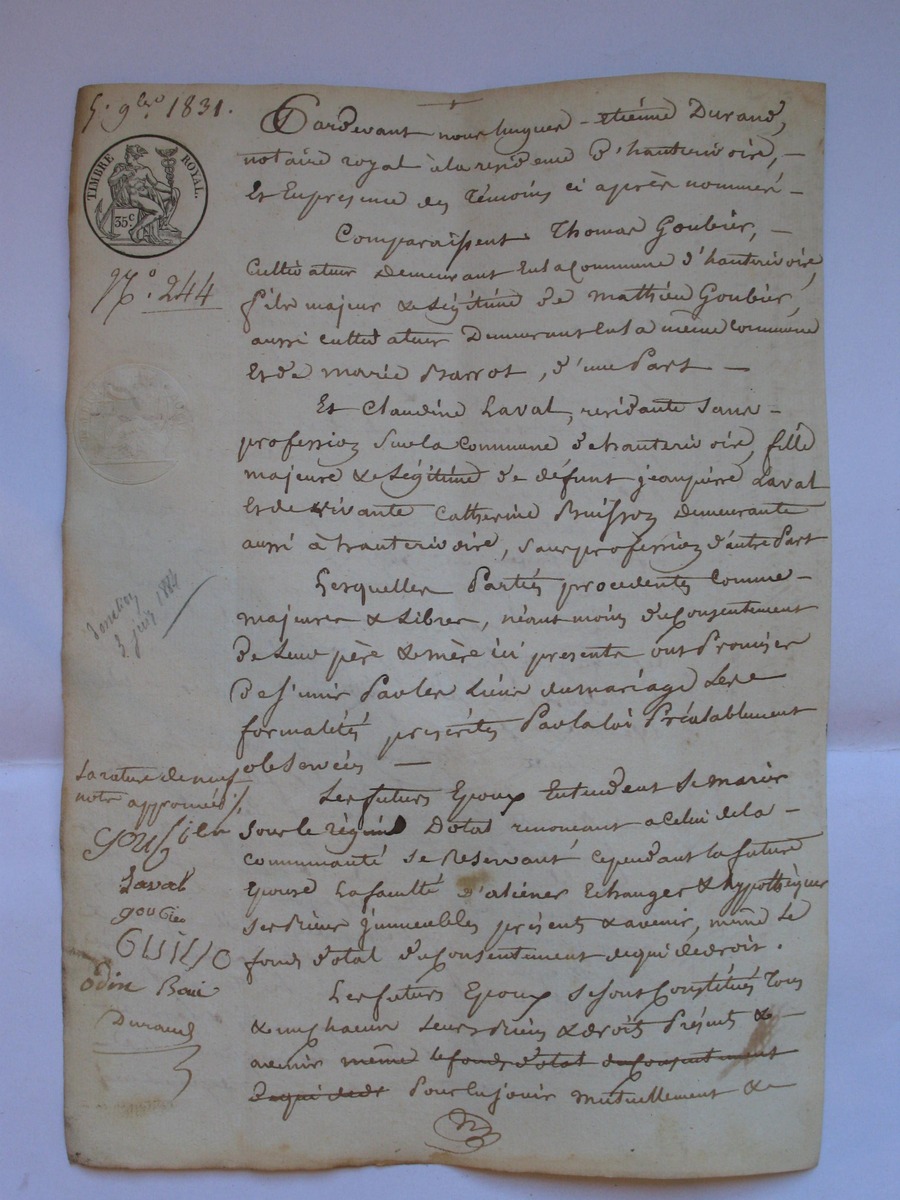 5. 9bre 1831.
TIMBRE ROYAL.
35c
N°. 244
Pardevant nous hugues - etiénne Durand,
notaire royal à la residence d'hauterivoire, -
Et En presence des Témoins ci après nommés -
Comparaissent Thomas Goubier, -
Cultivateur Demeurant En la Commune d'hauterivoire,
fils majeur & Légitime de mathieu Goubier,
aussi cultivateur Demeurant En la même commune
Et de marie Barrot, d'une Part -
Et Claudine Laval, residante sans -
profession sur la commune de hauterivoire, fille
majeure & Légitime de défunt jeanpierre Laval
Et de vivante Catherine Buisson Demeurante
aussi à hauterivoire, sans profession d'autre Part
Lesquelles Partiés procedentes Comme -
majeures & Libres, néant moins du Consentement
de Leur père & mère ici présents ont Promises
de s'unir Par les Liens du mariage Les
formalités prescrites Par la loi Préalablement
observées -
Les futurs Epoux Entendent se marier
sous le régime Dotal renoncant a celui de la -
communauté se Reservant cependant la future
Epouse La faculté d'aliéner Echanger & hypothequer
ses Biens immeubles présents & avenir, même Le
fonds dotal du Consentement de qui de droit.
Les futurs Epoux se sont Constitués Tous
& un chacun Leurs Biens & droits Présents & -
avenir même le fonds dotal du Consentement
de qui de dr Pour En jouir mutuellement &
La rature de neuf
mots approuvée
goubier
Laval
goubier
odin
Durand